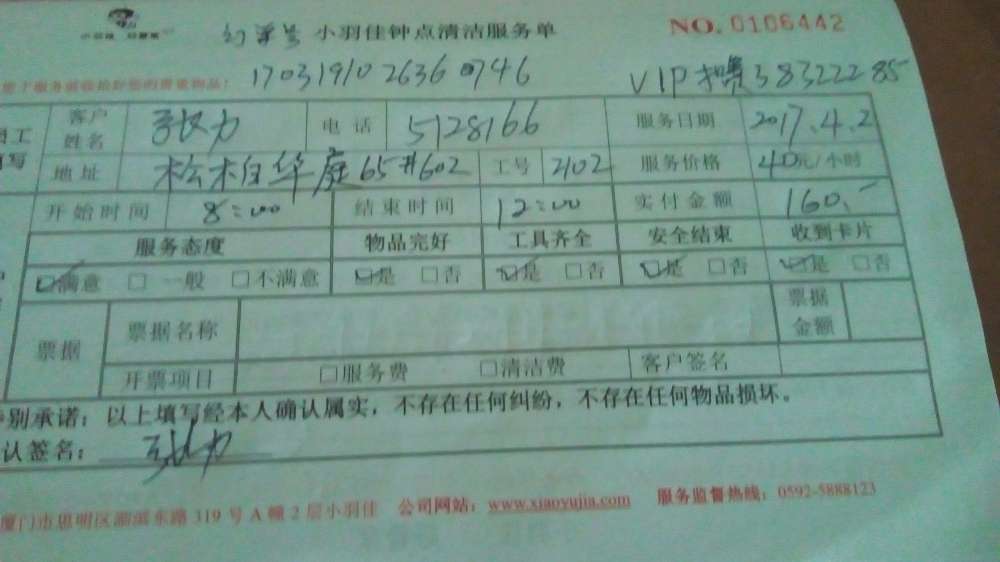 小羽佳钟点清洁服务单 NO.0106442
17031910 2636 0746 VIP 38322285
客户姓名 张力 电话 5128166 服务日期 2017.4.2
地址 松柏华庭65#602 工号 2102 服务价格 40元/小时
开始时间 8:00 结束时间 12:00 实付金额 160.-
服务态度 物品完好 工具齐全 安全结束 收到卡片
☑满意 □一般 □不满意 ☑是 □否 ☑是 □否 ☑是 □否 ☑是 □否
票据 票据名称 票据金额
开票项目 □服务费 □清洁费 客户签名
别承诺：以上填写经本人确认属实，不存在任何纠纷，不存在任何物品损坏。
认签名：张力
厦门市思明区湖滨东路319号A幢2层小羽佳 公司网站：www.xiaoyujia.com 服务监督热线：0592-5888123